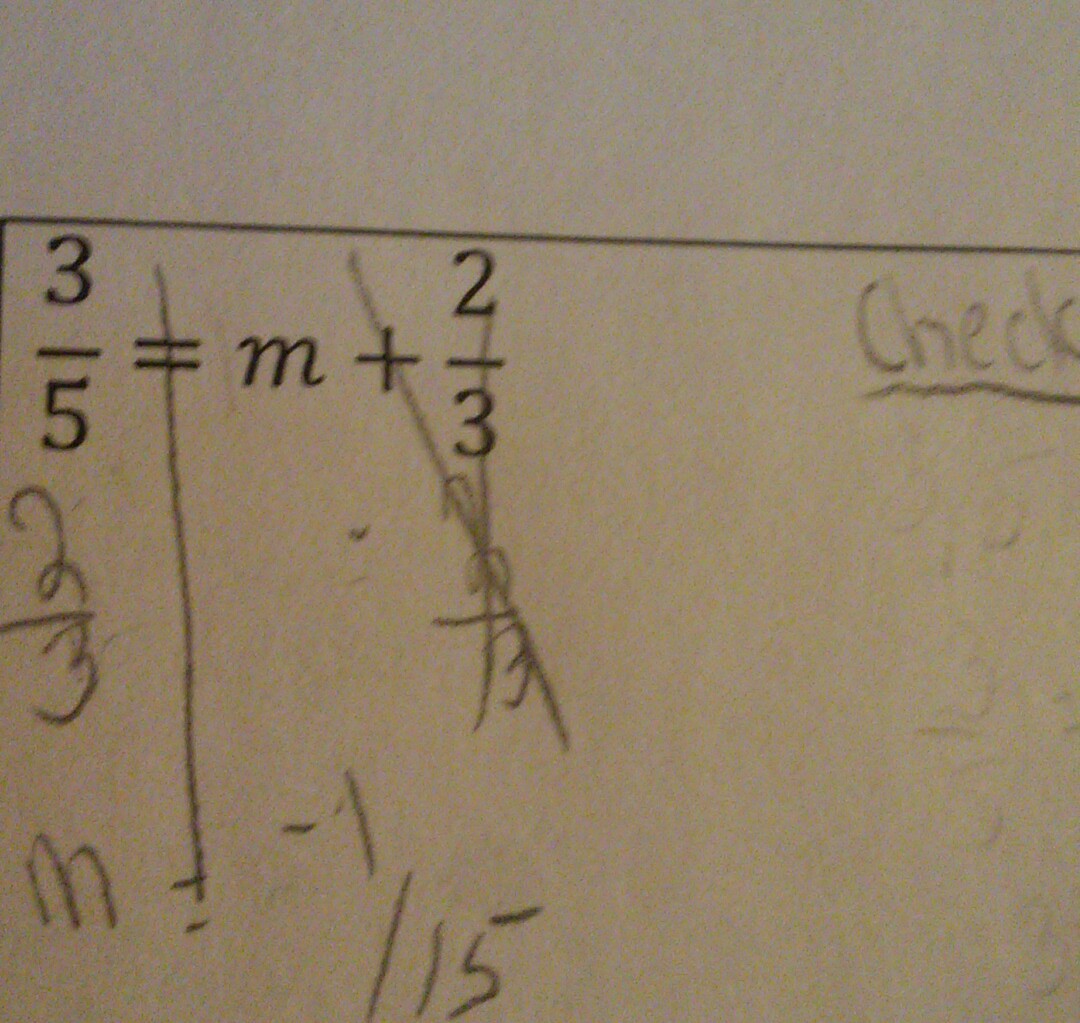 3/5 = m + 2/3
Check
2/3 - 2/3
m = -1/15